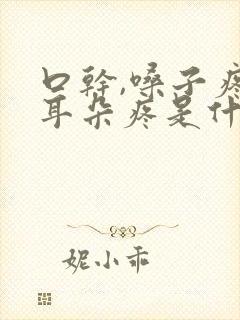 口幹,嗓子疼
耳朵疼是什
妮小乖